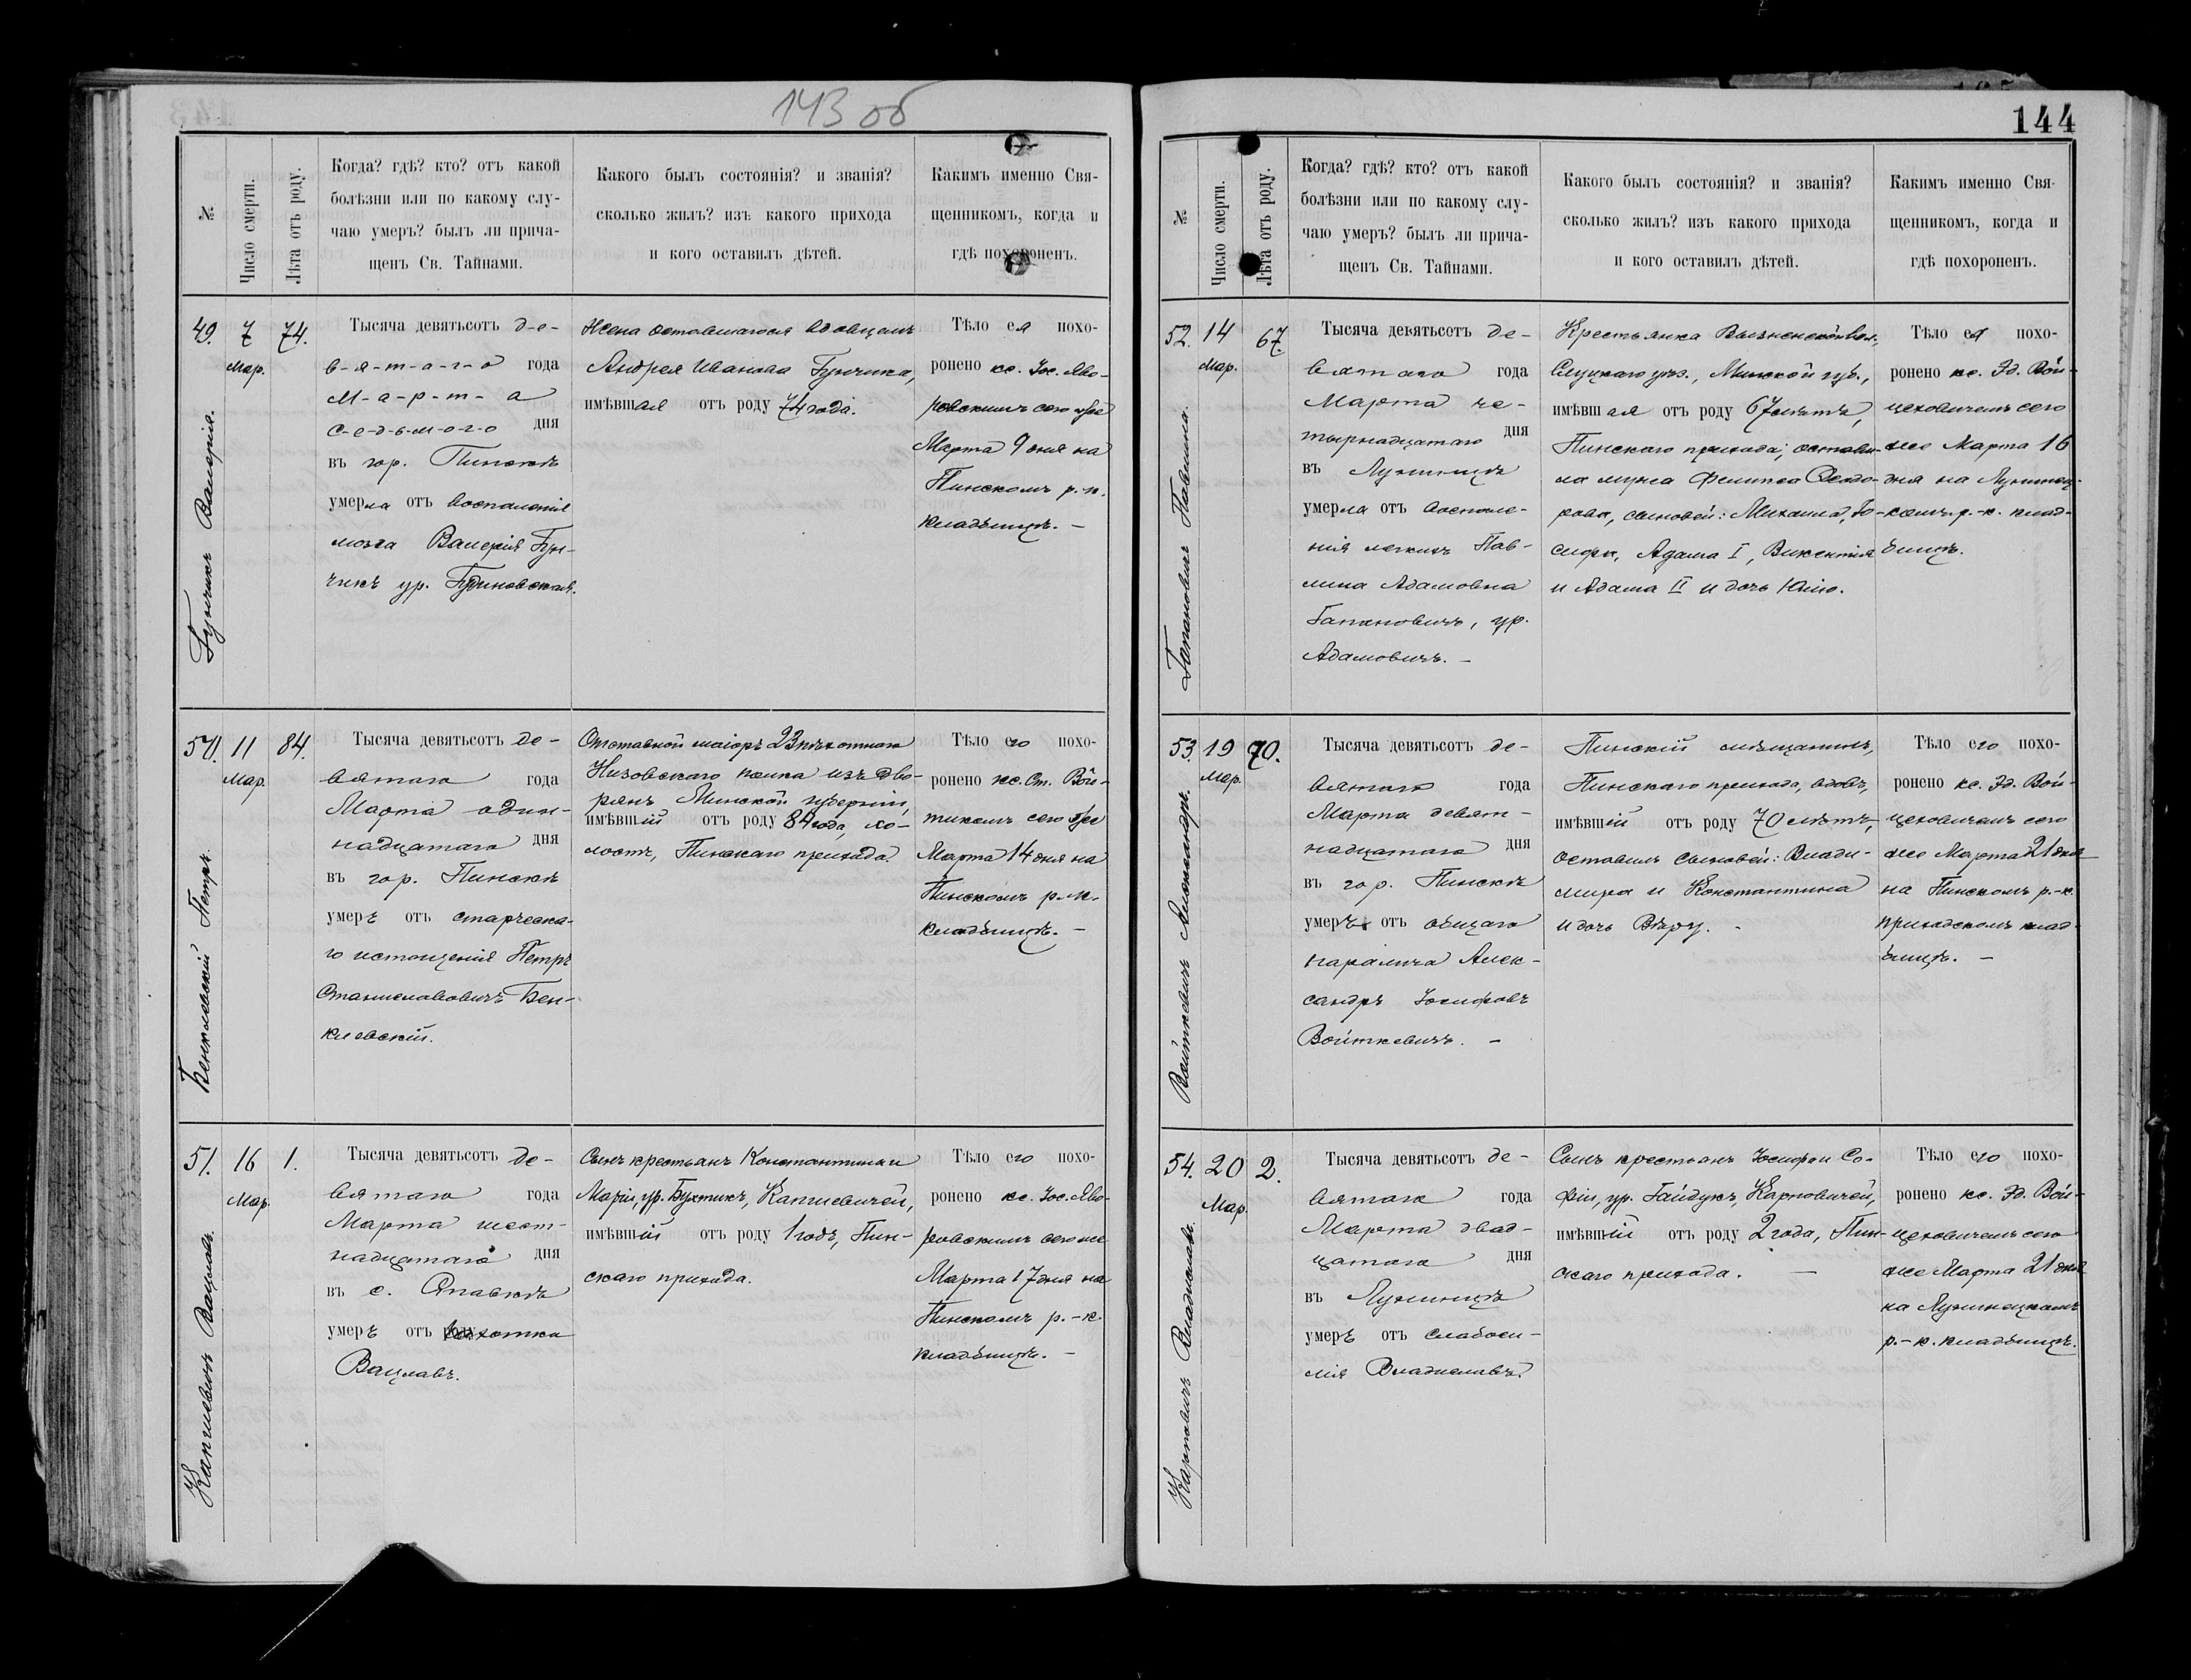 143 об
№
Число смерти.
Лѣта отъ роду.
Когда? гдѣ? кто? отъ какой
болѣзни или по какому слу-
чаю умеръ? былъ ли прича-
щенъ Св. Тайнами.
Какого былъ состоянія? и званія?
сколько жилъ? изъ какого прихода
и кого оставилъ дѣтей.
Какимъ именно Свя-
щенникомъ, когда и
гдѣ похороненъ.
49.
7
Мар.
74.
Бунчикъ Валерія.
Тысяча девятьсотъ д-е-
в-я-т-а-г-о года
М-а-р-т-а
с-е-д-ь-м-о-г-о дня
въ гор. Пинскѣ
умерла отъ воспаленія
мозга Валерія Бун-
чикъ ур.
Жена оставшагося вдовцемъ
Андрея Иванова Бунчика,
имѣвшая отъ роду 74 года.
Тѣло ея похо-
ронено кс. Іос. Яво-
ровскимъ сего же
Марта 9 дня на
Пинскомъ р.-к.
кладбищѣ. –
50.
11
Мар.
84.
Бенклевскій Петръ.
Тысяча девятьсотъ де-
вятаго года
Марта один-
надцатаго дня
въ гор. Пинскѣ
умеръ отъ старческа-
го истощенія Петръ
Станиславовичъ Бен-
клевскій.
Отставной маіоръ 23 пѣхотнаго
Низовскаго полка изъ дво-
рянъ Минской губерніи,
имѣвшій отъ роду 84 года, хо-
лостъ, Пинскаго прихода.
Тѣло его похо-
ронено кс. Ст. Вой-
тикомъ сего же
Марта 14 дня на
Пинскомъ р.-к.
кладбищѣ. –
51.
16
Мар.
1.
Капшевичъ Вацлавъ.
Тысяча девятьсотъ де-
вятаго года
Марта шест-
надцатаго дня
въ с.
умеръ отъ
Вацлавъ.
Сынъ крестьянъ Константина и
Маріи, ур. Бухтикъ, Капшевичей,
имѣвшій отъ роду 1 годъ, Пин-
скаго прихода.
Тѣло его похо-
ронено кс. Іос. Яво-
ровскимъ сего же
Марта 17 дня на
Пинскомъ р.-к.
кладбищѣ. –
144
№
Число смерти.
Лѣта отъ роду.
Когда? гдѣ? кто? отъ какой
болѣзни или по какому слу-
чаю умеръ? былъ ли прича-
щенъ Св. Тайнами.
Какого былъ состоянія? и званія?
сколько жилъ? изъ какого прихода
и кого оставилъ дѣтей.
Какимъ именно Свя-
щенникомъ, когда и
гдѣ похороненъ.
52.
14
Мар.
67.
Гапановичъ Павлина.
Тысяча девятьсотъ де-
вятаго года
Марта че-
тырнадцатаго дня
въ Лунинцѣ
умерла отъ воспале-
нія легкихъ Пав-
лина Адамовна
Гапановичъ, ур.
Адамовичъ. –
Крестьянка Вызненской вол.,
Слуцкаго уѣз., Минской губ.,
имѣвшая отъ роду 67 лѣтъ,
Пинскаго прихода; остави-
ла мужа Феликса Ѳеодо-
рова, сыновей: Михаила, Іо-
сифа, Адама I, Викентія
и Адама II и дочь Юлію.
Тѣло ея похо-
ронено кс. Эд. Вой-
цеховичемъ сего
же Марта 16
дня на Лунинец-
комъ р.-к. клад-
бищѣ.
53.
19
Мар.
70.
Войткевичъ Александръ.
Тысяча девятьсотъ де-
вятаго года
Марта девят-
надцатаго дня
въ гор. Пинскѣ
умеръ отъ общаго
паралича Алек-
сандръ Іосифовъ
Войткевичъ. –
Пинскій мѣщанинъ,
Пинскаго прихода, вдовъ,
имѣвшій отъ роду 70 лѣтъ,
оставилъ сыновей: Влади-
мира и Константина
и дочь Вѣру. –
Тѣло его похо-
ронено кс. Эд. Вой-
цеховичемъ сего
же Марта 21 дня
на Пинскомъ р.-к.
приходскомъ клад-
бищѣ. –
54.
20
Мар.
2.
Карповичъ Владиславъ.
Тысяча девятьсотъ де-
вятаго года
Марта двад-
цатаго дня
въ Лунинцѣ
умеръ отъ слабоси-
лія Владиславъ.
Сынъ крестьянъ Іосифа и Со-
фіи, ур. Гайдукъ, Карповичей,
имѣвшій отъ роду 2 года, Пин-
скаго прихода. –
Тѣло его похо-
ронено кс. Эд. Вой-
цеховичемъ сего
же Марта 21 дня
на Лунинецкомъ
р.-к. кладбищѣ.